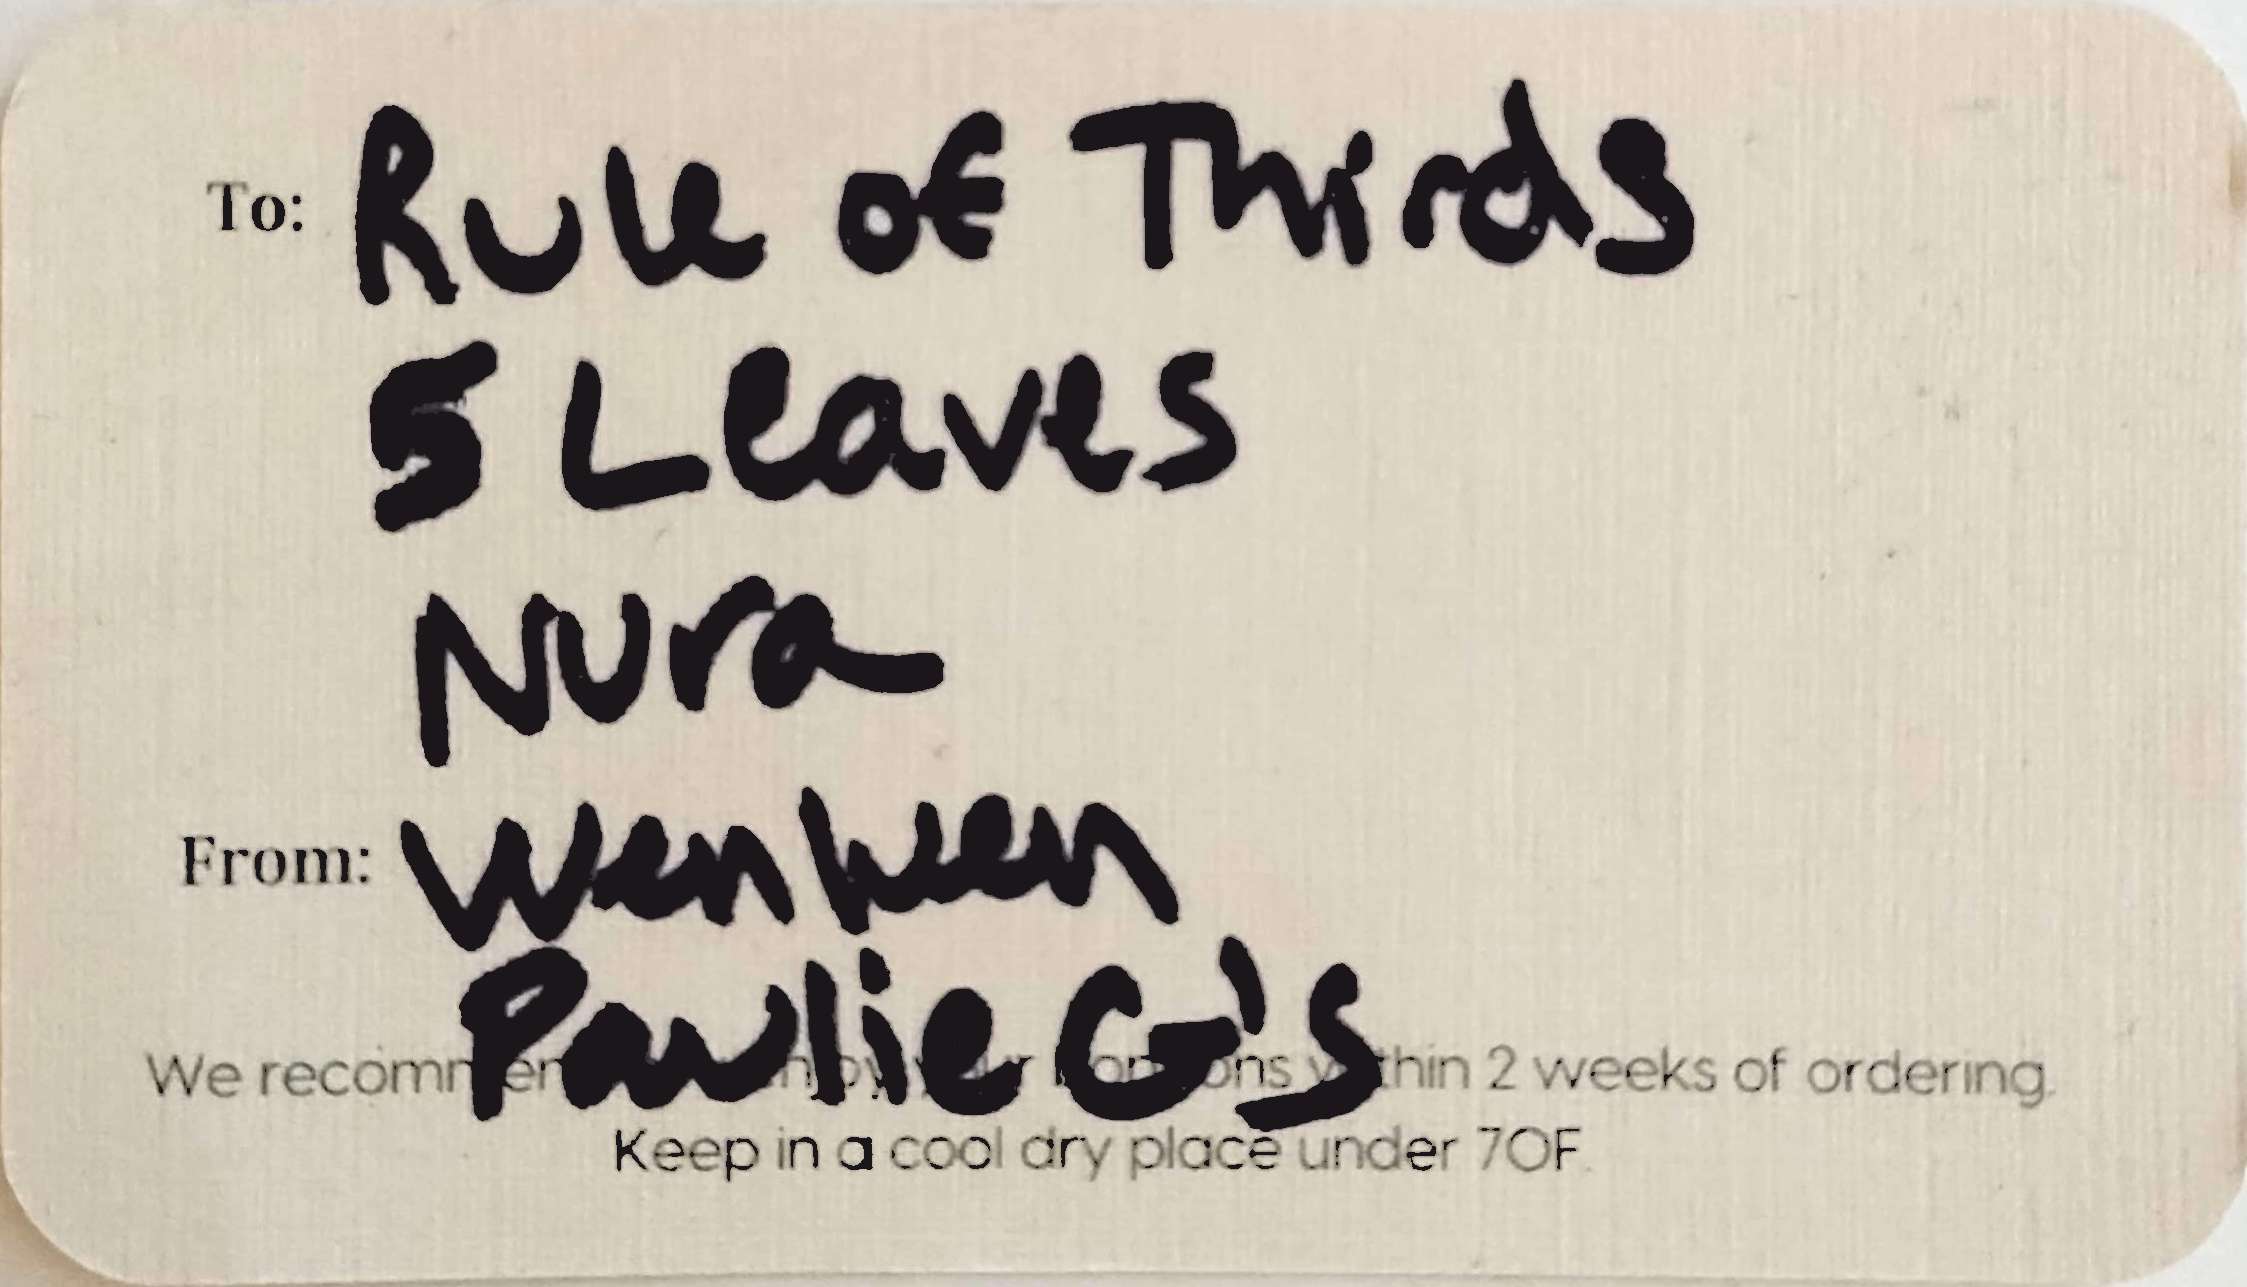 To: Rule of Thirds
5 Leaves
Nura
From: Wenwen
Paulie G's
We recommend enjoy your within 2 weeks of ordering.
Keep in a cool dry place under 70F.